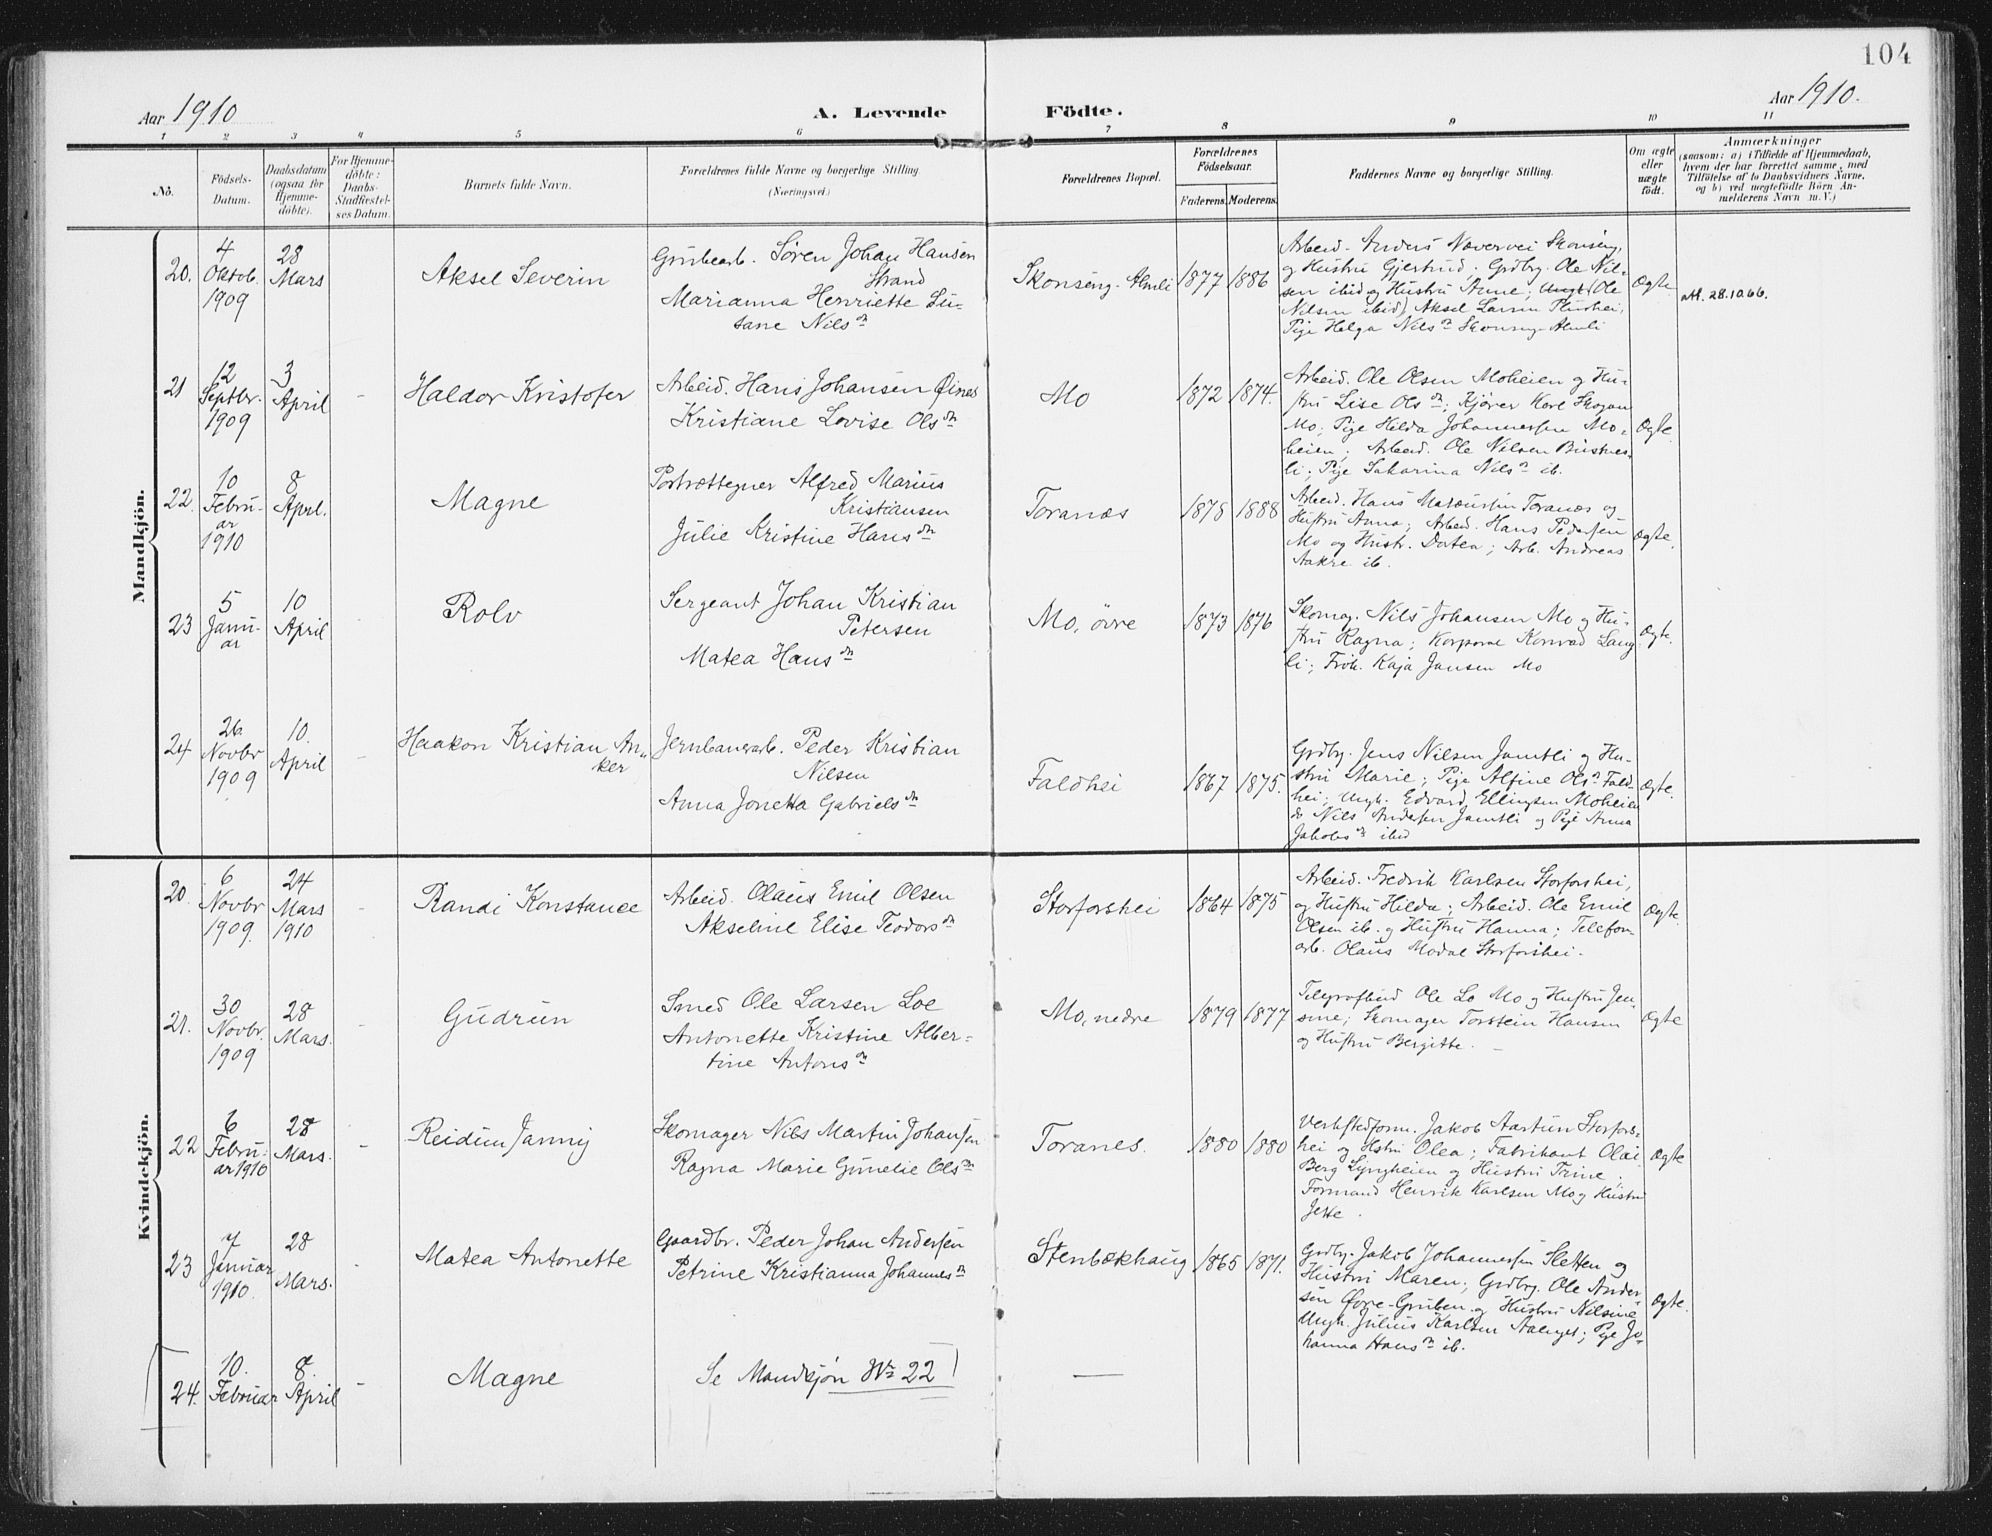 104
Aar 1910
A. Levende Födte.
Aar 1910.
1 2 3 4 5 6 7 8 9 10 11
No.
Födsels-
Datum.
Daabsdatum
(ogsaa for
Hjemme-
döbte).
For Hjemme-
döbte:
Daabs-
Stadfæstel-
ses Datum.
Barnets fulde Navn.
Forældrenes fulde Navne og borgerlige Stilling
(Næringsvei.)
Forældrenes Bopæl.
Forældrenes
Födselsaar.
Faderens. Moderens.
Faddernes Navne og borgerlige Stilling.
Om ægte
eller
uægte
födt.
Anmærkninger
(saasom: a) i Tilfælde af Hjemmedaab,
hvem der har forrettet samme, med
Tilföielse af to Daabsvidners Navne,
og b) ved uægtefödte Börn An-
melderens Navn m.V.)
Mandkjön.
20.
4
Oktob.
1909
28
Mars
-
Aksel Severin
Grubearb. Søren Johan Hansen
Strand
Marianna Henriette Su-
sane Nilsdn
Skonseng-Almli
1877 1886
Arbeid. Anders Navervei Skonseng,
og Hustru Gjertrud; Grdbr. Ole Nil-
sen ibid og Hustru Anne; Ungk. (Ole
Nilsen ibid) Aksel Larsen
Pige Helga Nilsdn Skonseng-Almli
Ægte
att. 28.10.66.
21
12
Septbr.
1909
3
April
-
Haldor Kristofer
Arbeid. Hans Johansen Øines
Kristiane Lovise Olsdn
Mo
1872 1874.
Arbeid. Ole Olsen Moheien og Hu-
stru Lise Olsdn; Kjører Karl Skogan
Mo; Pige Hilda Johannessen Mo-
heien; Arbeid. Ole Nilsen Büstnes-
li; Pige Sakarina Nilsdn ib.
Ægte.
22.
10
Febru-
ar
1910
8
April.
-
Magne
Portrættegner Alfred Marius
Kristiansen
Julie Kristine Hansdn
Toranæs
1878 1888
Arbeid. Hans Mateussen Toranæs og
Hustru Anna; Arbeid. Hans Pedersen
Mo og Hustr. Dotea; Arb. Andreas
Aakre ib.
Ægte.
23
5
Janu-
ar
10
April
Rolv
Sergeant Johan Kristian
Petersen
Matea Hansdn
Mo, övre
1873 1876
Skomag. Nils Johansen Mo og Hu-
stru Ragna; Korporal Konrad Lang
li; Frøk. Kaja Jansen Mo
Ægte.
24
26
Novbr
1909
10.
April
-
Haakon Kristian An-
ker
Jernbanearb. Peder Kristian
Nilsen
Anna Jonetta Gabrielsdn
Faldhei
1867 1875.
Grdbr. Jens Nilsen Jamtli og Hu-
stru Marie; Pige Alfine Olsdn Fald-
hei; Ungk. Edvard Ellingsen Moheien
do Nils Andersen Jamtli og Pige Anna
Jakobsdn ibid
Ægte.
Kvindekjön.
20.
6
Novbr
1909.
24
Mars
1910
-
Randi Konstance
Arbeid. Olaus Emil Olsen
Akseline Elise Teodorsdn
Storforshei
1864 1875
Arbeid. Fredrik Karlsen Storforshei,
og Hustru Hilda; Arbeid. Ole Emil
Olsen ib. og Hustru Hanna; Telefon-
arb. Olaus Modal Storforshei.
Ægte
21.
30
Novbr.
1909
28
Mars.
-
Gudrun
Smed Ole Larsen Loe
Antonette Kristine Alber-
tine Antonsdn
Mo, nedre
1879 1877
Telegrafbud Ole Lo Mo og Hustru Jen-
sine; Skomager Torstein Hansen
og Hustru Bergitte.
Ægte
22
6
Febru-
ar 1910
28
Mars.
-
Reidun Jannij
Skomager Nils Martin Johansen
Ragna Marie Gunelie Olsdn
Toranes.
1880 1880
Verkstedform. Jakob Aastun Storfors-
hei og Hstru Olea; Fabrikant Olai
Berg Lyngheien og Hustru Trine.
Formand Henrik Karlsen Mo og Hustru
Jette.
Ægte
23
7
Januar
1910.
28
Mars.
-
Matea Antonette
Gaardbr. Peder Johan Andersen
Petrine Kristianna Johannesdn
Stenbækhaug
1865 1871.
Grdbr. Jakob Johannessen Sletten og
Hustru Maren; Grdbr. Ole Ander-
sen Øvre-Gruben og Hustru Nilsine
Ungk. Julius Karlsen; Pige Jo-
hanna Hansdn ib.
Ægte.
24.
10.
Februar
8.
April
-
Magne
Se Mandkjøn No 22
—